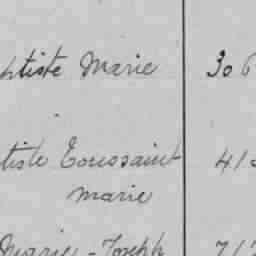 ptiste Marie 306
tiste Toussaint 41
Marie
Marie - Joseph 71